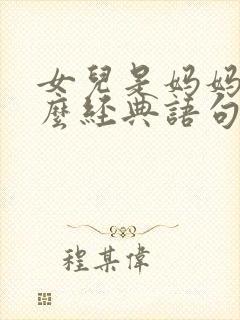 女兒是媽媽
麼經典語句
程某偉